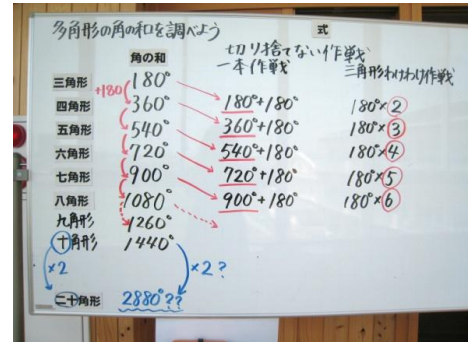 多角形の角の和を調べよう
式
角の和
切り捨てない作戦
一本作戦
三角形わけわけ作戦
三角形 180°
+180
四角形 360° 180°+180° 180°×2
五角形 540° 360°+180° 180°×3
六角形 720° 540°+180° 180°×4
七角形 900° 720°+180° 180°×5
八角形 1080° 900°+180° 180°×6
九角形 1260°
十角形 1440°
×2 ×2?
二十角形 2880°??